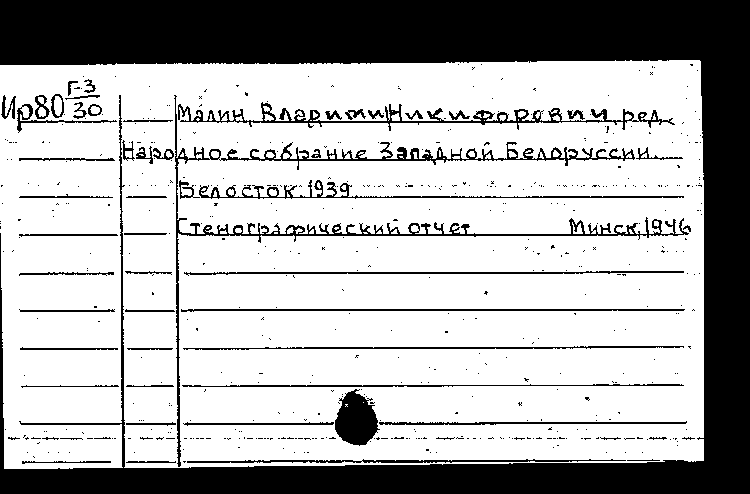 Ир80 Г-3
30
Малин, Владими Никифорович, ред.
Народное собрание Западной Белоруссии.
Белосток. 1939.
Стенографический отчет. Минск, 1946